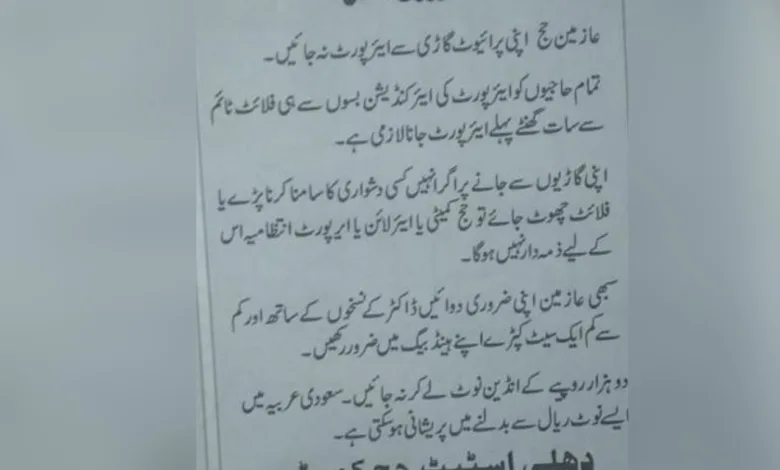 عازمین حج اپنی پرائیوٹ گاڑی سے ایئرپورٹ نہ جائیں۔
تمام حاجیوں کو ایئرپورٹ کی ایئر کنڈیشن بسوں سے ہی فلائٹ ٹائم
سے سات گھنٹے پہلے ایئرپورٹ جانا لازمی ہے۔
اپنی گاڑیوں سے جانے پر اگر انہیں کسی دشواری کا سامنا کرنا پڑے یا
فلائٹ چھوٹ جائے تو حج کمیٹی یا ایئر لائن یا ایرپورٹ انتظامیہ اس
کے لیے ذمہ دار نہیں ہوگا۔
سبھی عازمین اپنی ضروری دوائیں ڈاکٹر کے نسخوں کے ساتھ اور کم
سے کم ایک سیٹ کپڑے اپنے ہینڈ بیگ میں ضرور رکھیں۔
دو ہزار روپیے کے انڈین نوٹ لے کر نہ جائیں۔ سعودی عربیہ میں
ایسے نوٹ ریال سے بدلنے میں پریشانی ہوسکتی ہے۔
دهلی اسٹیٹ حج